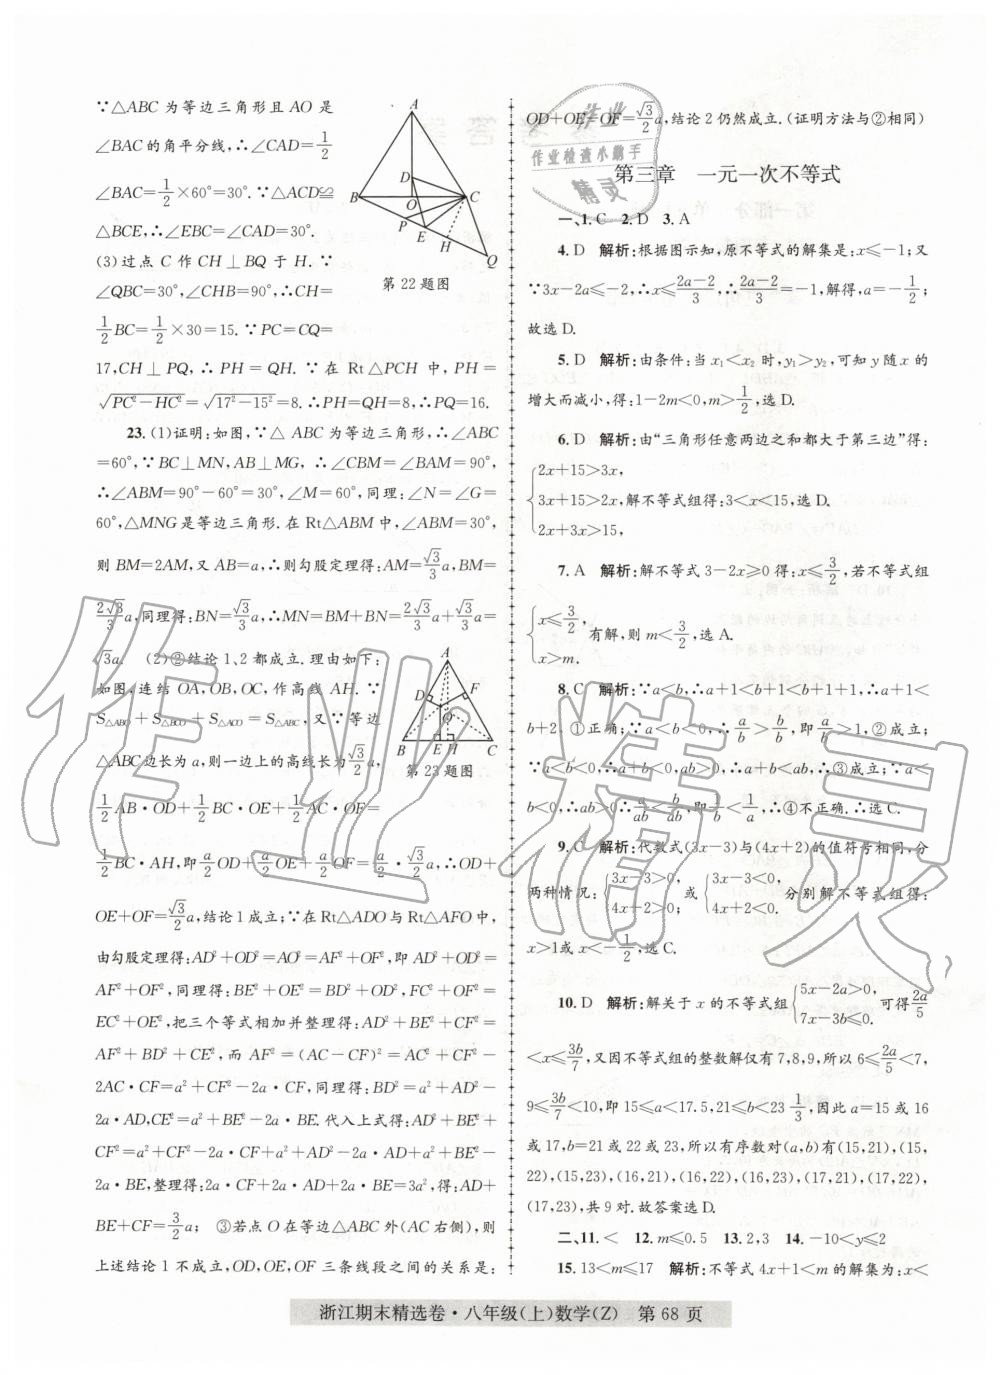 ∵△ABC 为等边三角形且 AO 是
∠BAC 的角平分线,∴∠CAD=1/2
∠BAC=1/2×60°=30°. ∵△ACD≌
△BCE,∴∠EBC=∠CAD=30°.
(3)过点 C 作 CH⊥BQ 于 H. ∵
∠QBC=30°,∠CHB=90°,∴CH=
1/2BC=1/2×30=15. ∵PC=CQ=
17,CH⊥PQ,∴PH=QH. ∵在 Rt△PCH 中,PH=
√(PC²-HC²)=√(17²-15²)=8. ∴PH=QH=8,∴PQ=16.
第 22 题图
23. (1)证明:如图,∵△ABC 为等边三角形,∴∠ABC
=60°,∵BC⊥MN,AB⊥MG,∴∠CBM=∠BAM=90°,
∴∠ABM=90°-60°=30°,∠M=60°,同理:∠N=∠G=
60°,△MNG 是等边三角形. 在 Rt△ABM 中,∠ABM=30°,
则 BM=2AM,又 AB=a,∴则勾股定理得:AM=√3/3a,BM=
2√3/3a,同理得:BN=√3/3a,∴MN=BM+BN=2√3/3a+√3/3a=
√3a. (2)②结论 1、2 都成立. 理由如下:
如图,连结 OA,OB,OC,作高线 AH. ∵
S△ABO+S△BCO+S△ACO=S△ABC,又∵等边
△ABC边长为 a,则一边上的高线长为√3/2a,
第 23 题图
1/2AB·OD+1/2BC·OE+1/2AC·OF=
1/2BC·AH,即a/2OD+a/2OE+a/2OF=a/2·√3/2a,∴OD+
OE+OF=√3/2a,结论 1 成立;∵在 Rt△ADO 与 Rt△AFO 中,
由勾股定理得:AD²+OD²=AO²=AF²+OF²,即 AD²+OD²=
AF²+OF²,同理得:BE²+OE²=BD²+OD²,FC²+OF²=
EC²+OE²,把三个等式相加并整理得:AD²+BE²+CF²=
AF²+BD²+CE²,而 AF²=(AC-CF)²=AC²+CF²-
2AC·CF=a²+CF²-2a·CF,同理得:BD²=a²+AD²-
2a·AD,CE²=a²+BE²-2a·BE. 代入上式得:AD²+BE²+
CF²=a²+CF²-2a·CF+a²+AD²-2a·AD+a²+BE²-2a·
BE,整理得:2a·CF+2a·AD+2a·BE=3a²,得:AD+
BE+CF=3/2a; ③若点 O 在等边△ABC 外(AC 右侧),则
上述结论 1 不成立,OD,OE,OF 三条线段之间的关系是:
OD+OE-OF=√3/2a,结论 2 仍然成立.(证明方法与②相同)
第三章 一元一次不等式
一、1. C 2. D 3. A
4. D 解析:根据图示知,原不等式的解集是:x≤-1;又
∵3x-2a≤-2,∴x≤(2a-2)/3,∴(2a-2)/3=-1,解得,a=-1/2;
故选 D.
5. D 解析:由条件:当 x₁<x₂ 时,y₁>y₂,可知 y 随 x 的
增大而减小,得:1-2m<0,m>1/2,选 D.
6. D 解析:由“三角形任意两边之和都大于第三边”得:
{2x+15>3x,
3x+15>2x,解不等式组得:3<x<15,选 D.
2x+3x>15,
7. A 解析:解不等式 3-2x≥0 得:x≤3/2,若不等式组
{x≤3/2, 有解,则 m<3/2,选 A.
x>m.
8. C 解析:∵a<b,∴a+1<b+1<b+1+1,∴a+1<
b+2. ①正确;∵a<b<0,∴a/b>b/b,即a/b>1,②成立;
∵a<b<0,∴a+b<0,ab>0,∴a+b<ab,∴③成立;∵a<
b<0,∴ab>0∴a/ab<b/ab,即1/b<1/a,∴④不正确. ∴选 C.
9. C 解析:代数式(3x-3)与(4x+2)的值符号相同,分
两种情况:{3x-3>0, 4x+2>0; 或{3x-3<0, 4x+2<0. 分别解不等式组得:
x>1或 x<-1/2,选 C.
10. D 解析:解关于 x 的不等式组{5x-2a>0, 7x-3b≤0. 可得2a/5
<x≤3b/7,又因不等式组的整数解仅有 7,8,9,所以 6≤2a/5<7,
9≤3b/7<10,即 15≤a<17.5,21≤b<23 1/3,因此 a=15 或 16
或 17,b=21 或 22 或 23,所以有序数对(a,b)有(15,21),(15,
22),(15,23),(16,21),(16,22),(16,23),(17,21),(17,22),
(17,23),共 9 对. 故答案选 D.
二、11. < 12. m≤0.5 13. 2,3 14. -10<y≤2
15. 13<m≤17 解析:不等式 4x+1<m 的解集为:x<
浙江期末精选卷·八年级(上)数学(Z) 第 68 页
作业精灵
作业
作业检查小助手
精灵